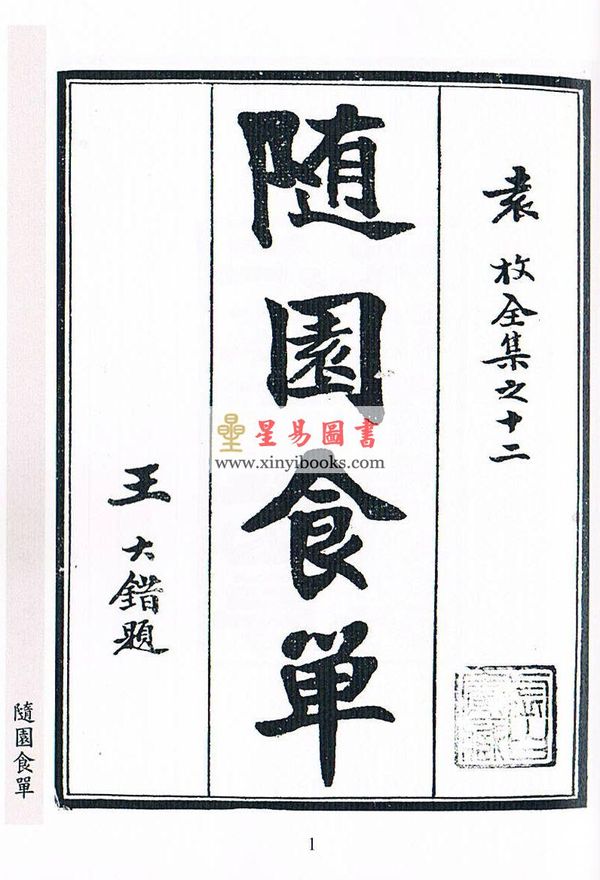 袁枚全集之十二
随園食单
王大錯題
星易圖書
www.xinyibooks.com
隨園食單
1